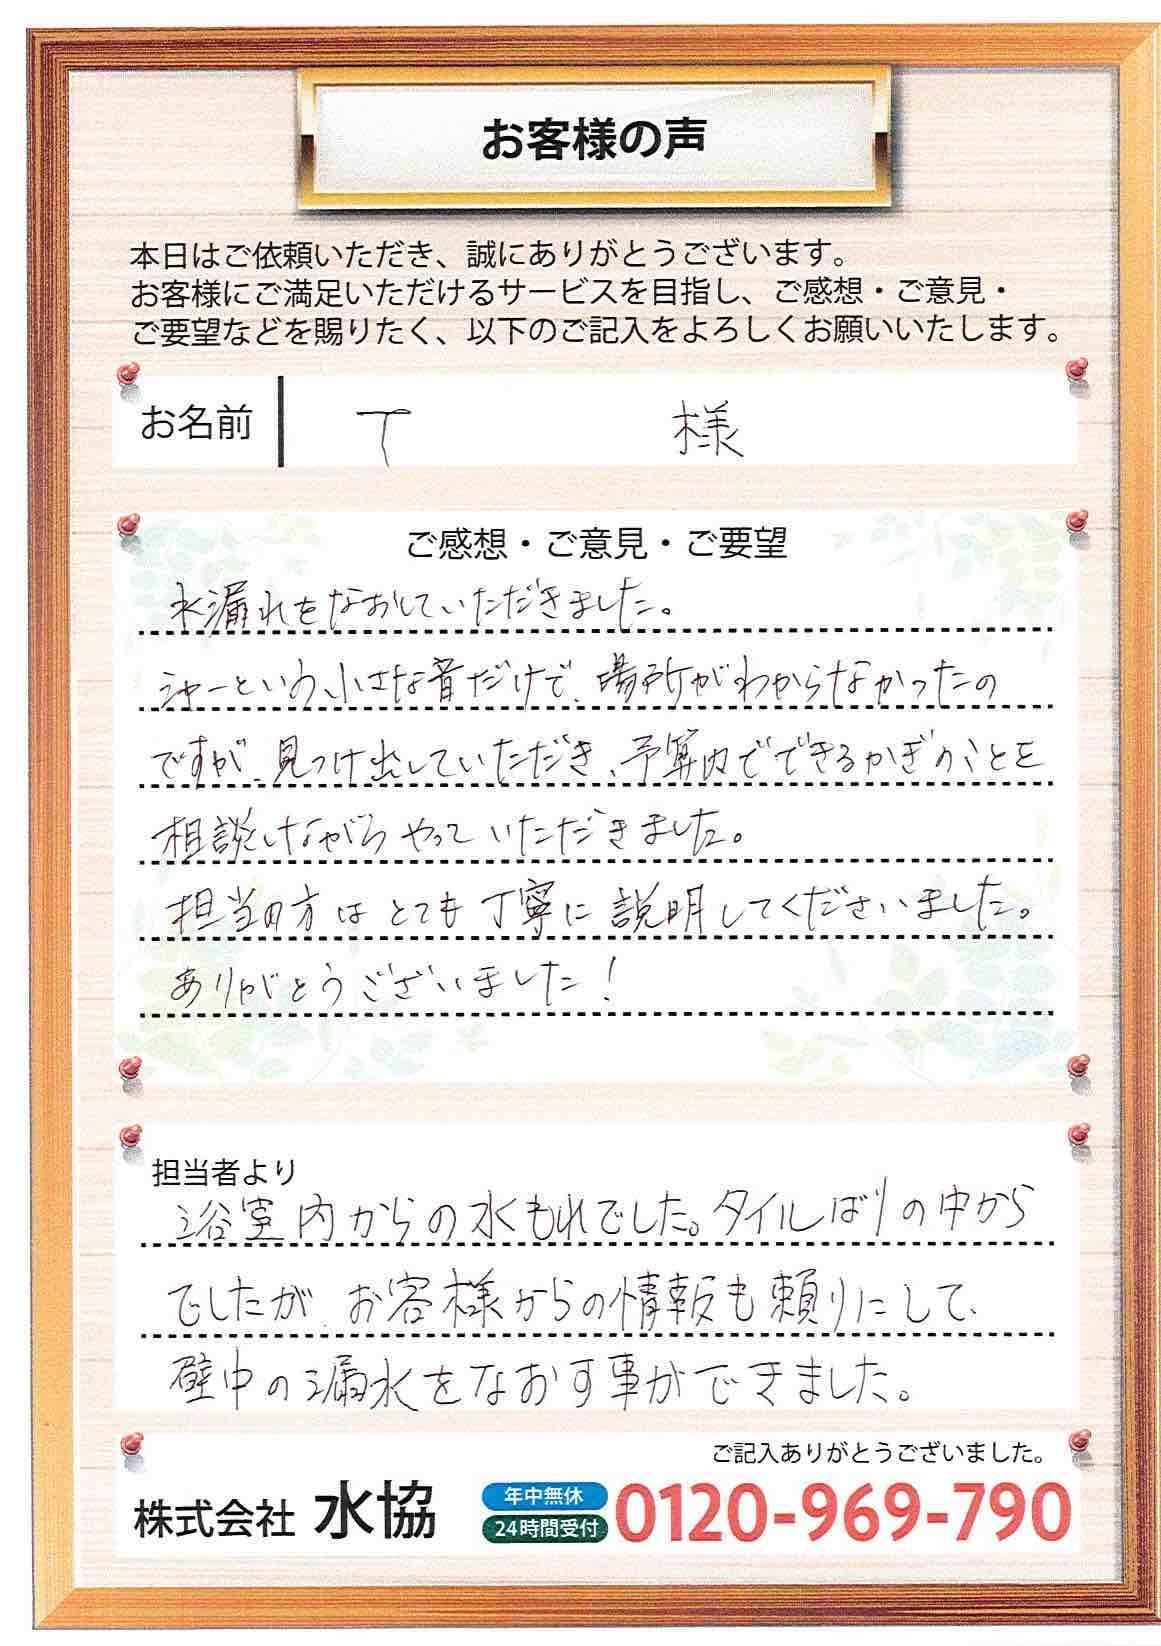 お客様の声
本日はご依頼いただき、誠にありがとうございます。
お客様にご満足いただけるサービスを目指し、ご感想・ご意見・
ご要望などを賜りたく、以下のご記入をよろしくお願いいたします。
お名前 T 様
ご感想・ご意見・ご要望
水漏れをなおしていただきました。
シャーという小さな音だけで、場所がわからなかったの
ですが、見つけ出していただき、予算内でできるかぎりのことを
相談しながらやっていただきました。
担当の方はとても丁寧に説明してくださいました。
ありがとうございました!
担当者より
浴室内からの水もれでした。タイルばりの中から
でしたが、お客様からの情報も頼りにして、
壁中の漏水をなおす事ができました。
ご記入ありがとうございました。
株式会社 水協 年中無休 24時間受付 0120-969-790